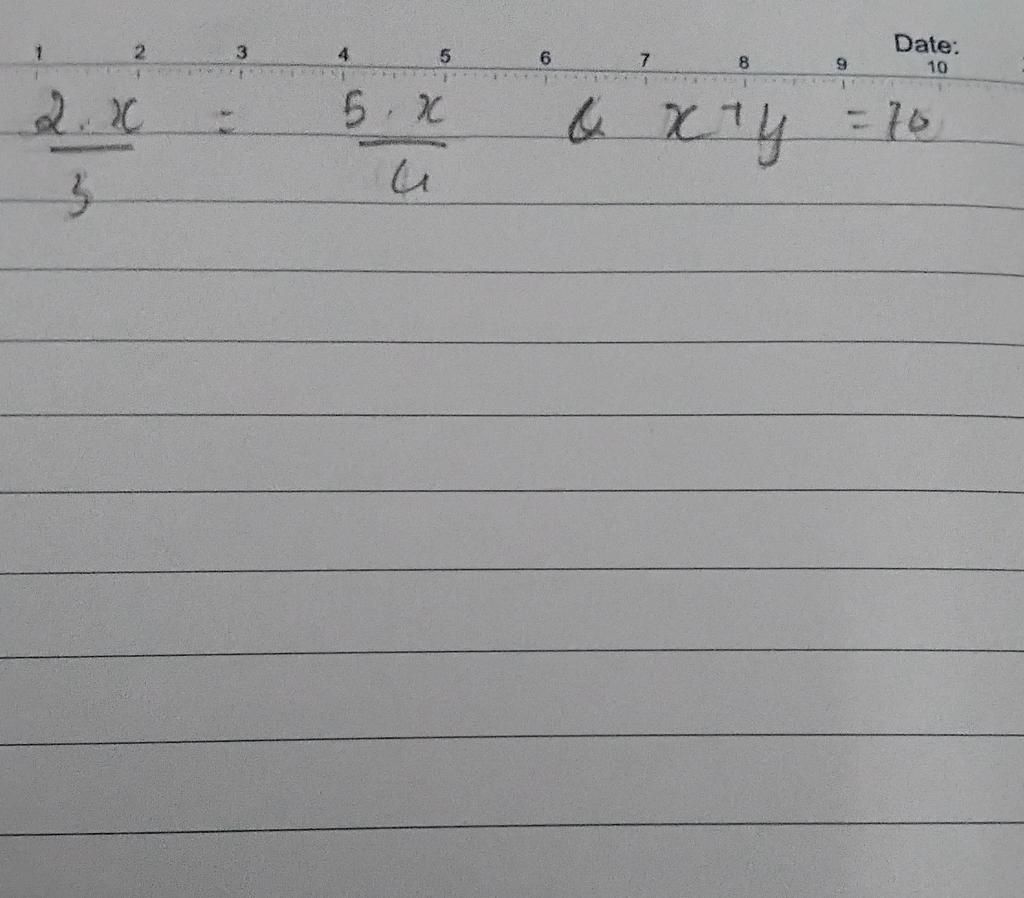 Date:
1 2 3 4 5 6 7 8 9 10
2.x/3 = 5.x/4 & x+y = 70